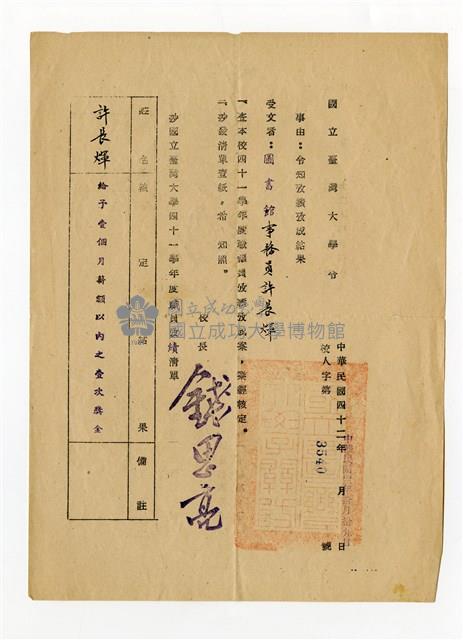 國立臺灣大學令
中華民國四十二年　月　日
校人字第3540號
事由：令知考績考成結果
受文者：圖書館事務員許長煇
一、查本校四十一學年度職員考績考成案，業經核定。
二、抄發清單壹紙，希知照。
校長
錢思亮
抄國立臺灣大學四十一學年度職員考績清單
姓名
核定結果
備註
許長煇
給予壹個月薪額以內之壹次獎金
國立成功大學博物館